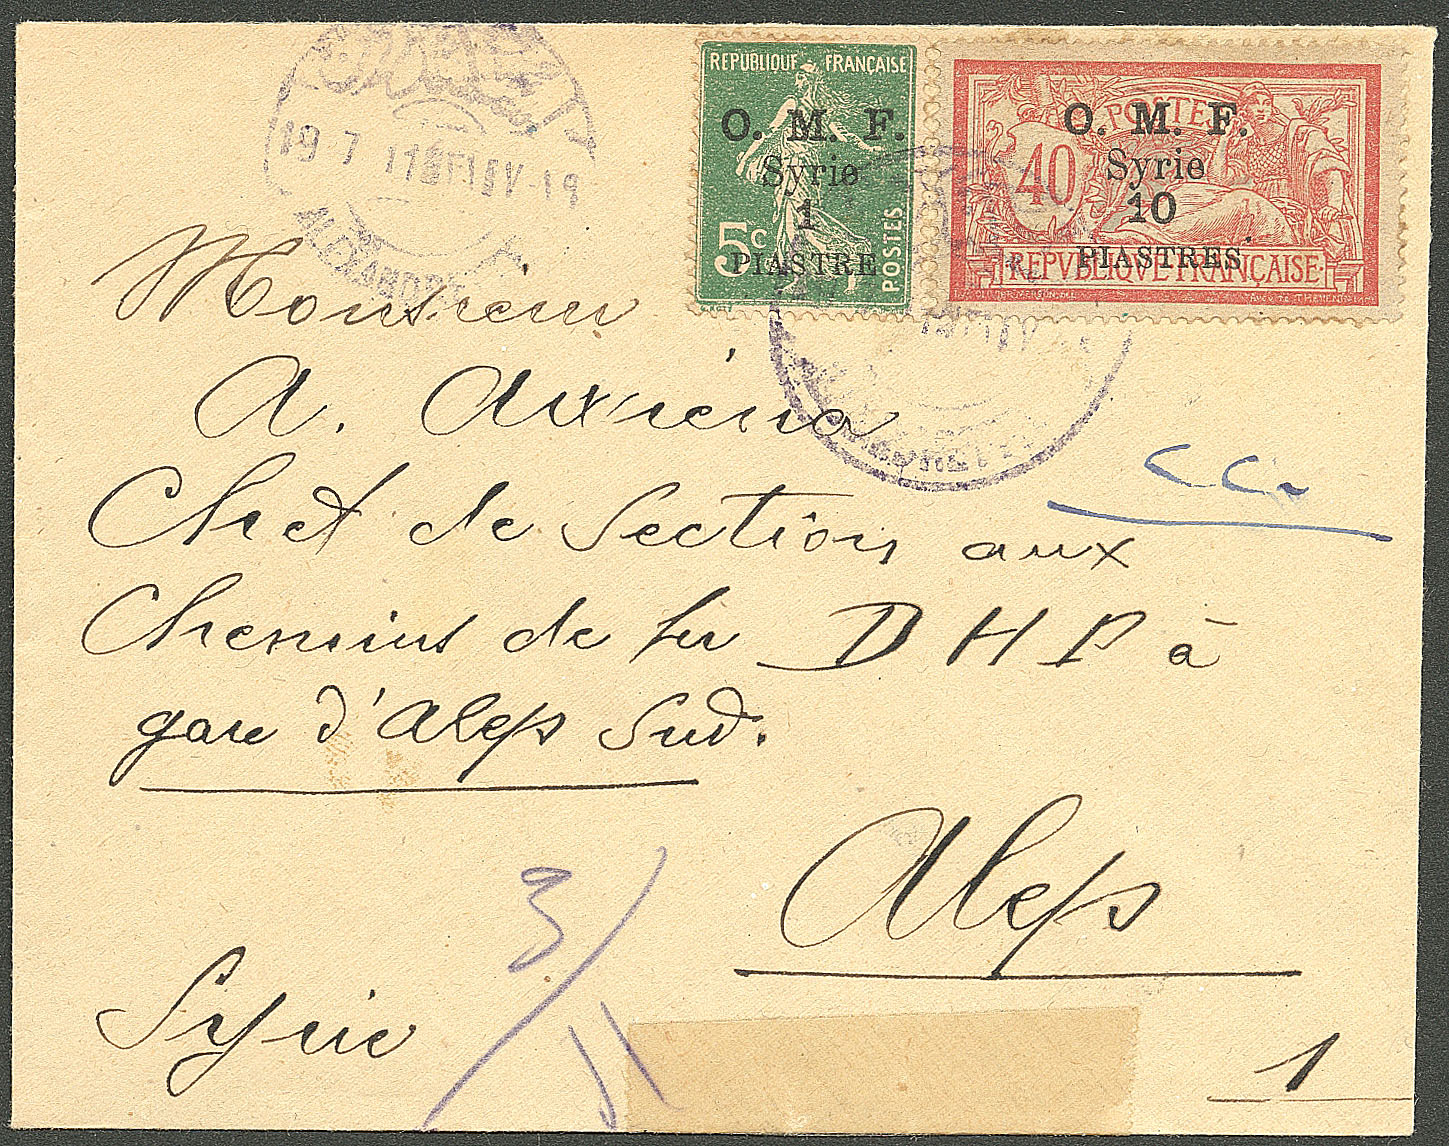 REPUBLIQUE FRANÇAISE
O. M. F.
Syrie
1
PIASTRE
5c
POSTES
POSTES
O. M. F.
Syrie
40
10
PIASTRES
REPVBLIQVE FRANÇAISE
19 7
ALEXANDRE
Monsieur
A.
Chef de Section aux
Chemins de fer D H P à
gare d'Alep Sud.
Alep
Syrie
3
11
1